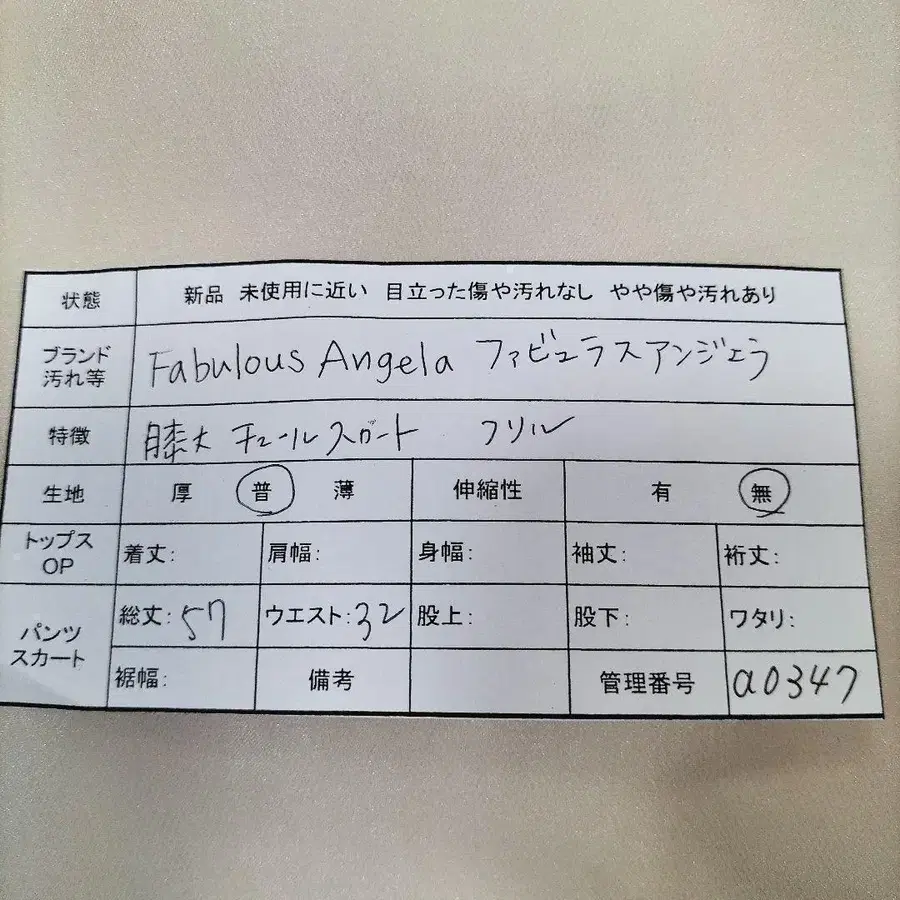 状態 新品 未使用に近い 目立った傷や汚れなし やや傷や汚れあり
ブランド 汚れ等 Fabulous Angela ファビュラスアンジェラ
特徴 膝丈 チュールスカート フリル
生地 厚 普 薄 伸縮性 有 無
トップス OP 着丈: 肩幅: 身幅: 袖丈: 裄丈:
パンツ スカート 総丈:57 ウエスト:32 股上: 股下: ワタリ:
裾幅: 備考 管理番号 a0347